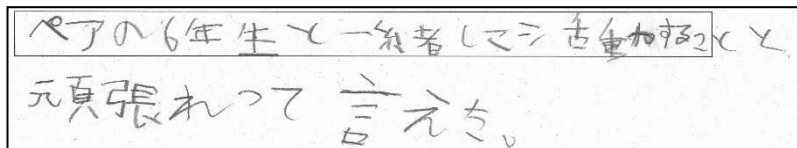 ペアの6年生と一緒に活動することと
頑張れって言えた。